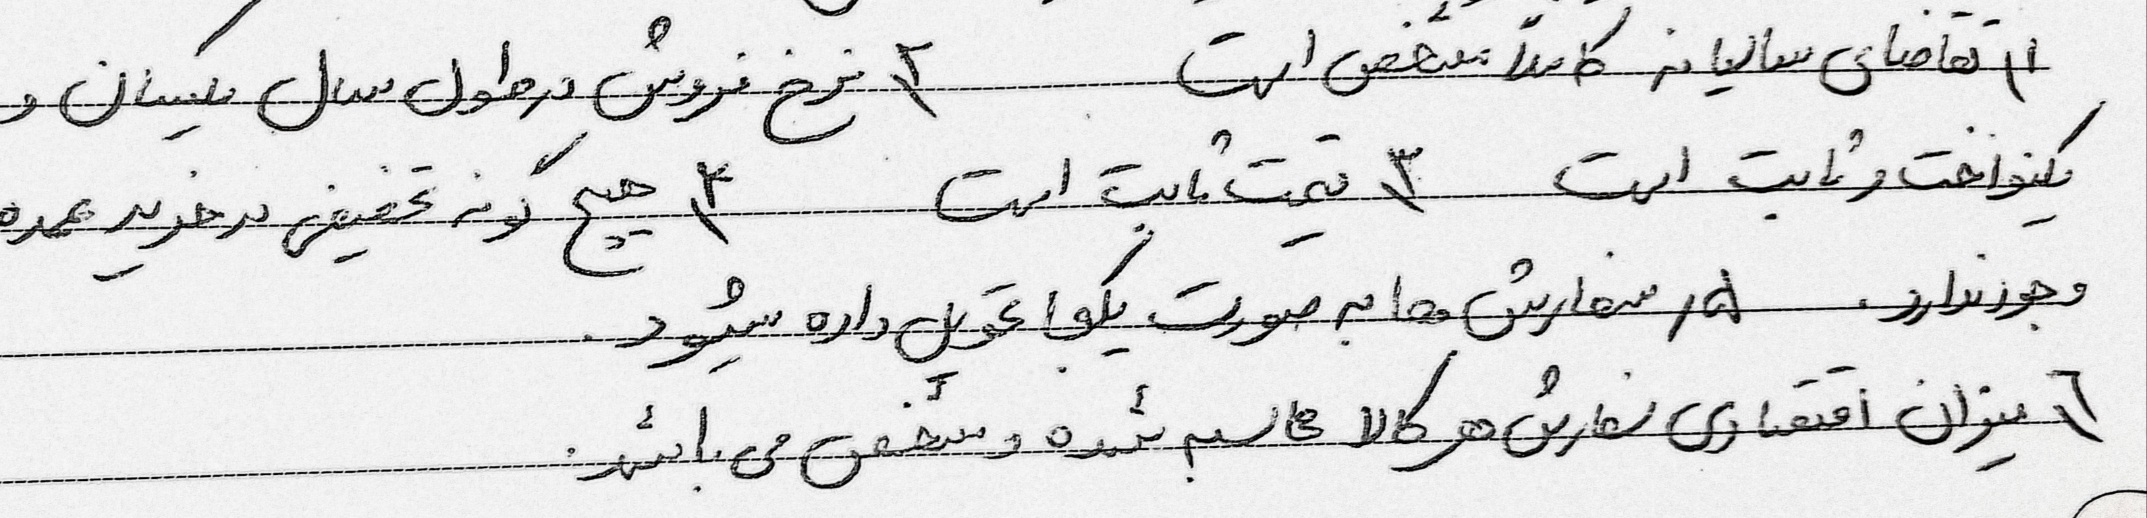 ۱) تقاضای سالیانه کاملاً مشخص است ۲) نرخ فروش در طول سال یکسان و
یکنواخت و ثابت است ۳) قیمت ثابت است ۴) هیچ گونه تخفیفی در خرید عمده
وجود ندارد. ۵) سفارش ها به صورت یکجا تحویل داده میشود.
۶) میزان اقتصادی سفارش هر کالا محاسبه شده و مشخص می باشد.